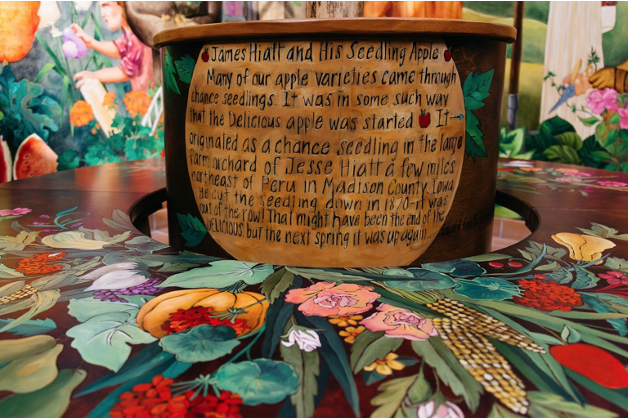 James Hiatt and His Seedling Apple
Many of our apple varieties came through
chance seedlings. It was in some such way
that the Delicious apple was started It
originated as a chance seedling in the large
farm orchard of Jesse Hiatt a few miles
northeast of Peru in Madison County Iowa
He cut the seedling down in 1870-it was
out of the row! That might have been the end of the
DELICIOUS but the next spring it was up again...